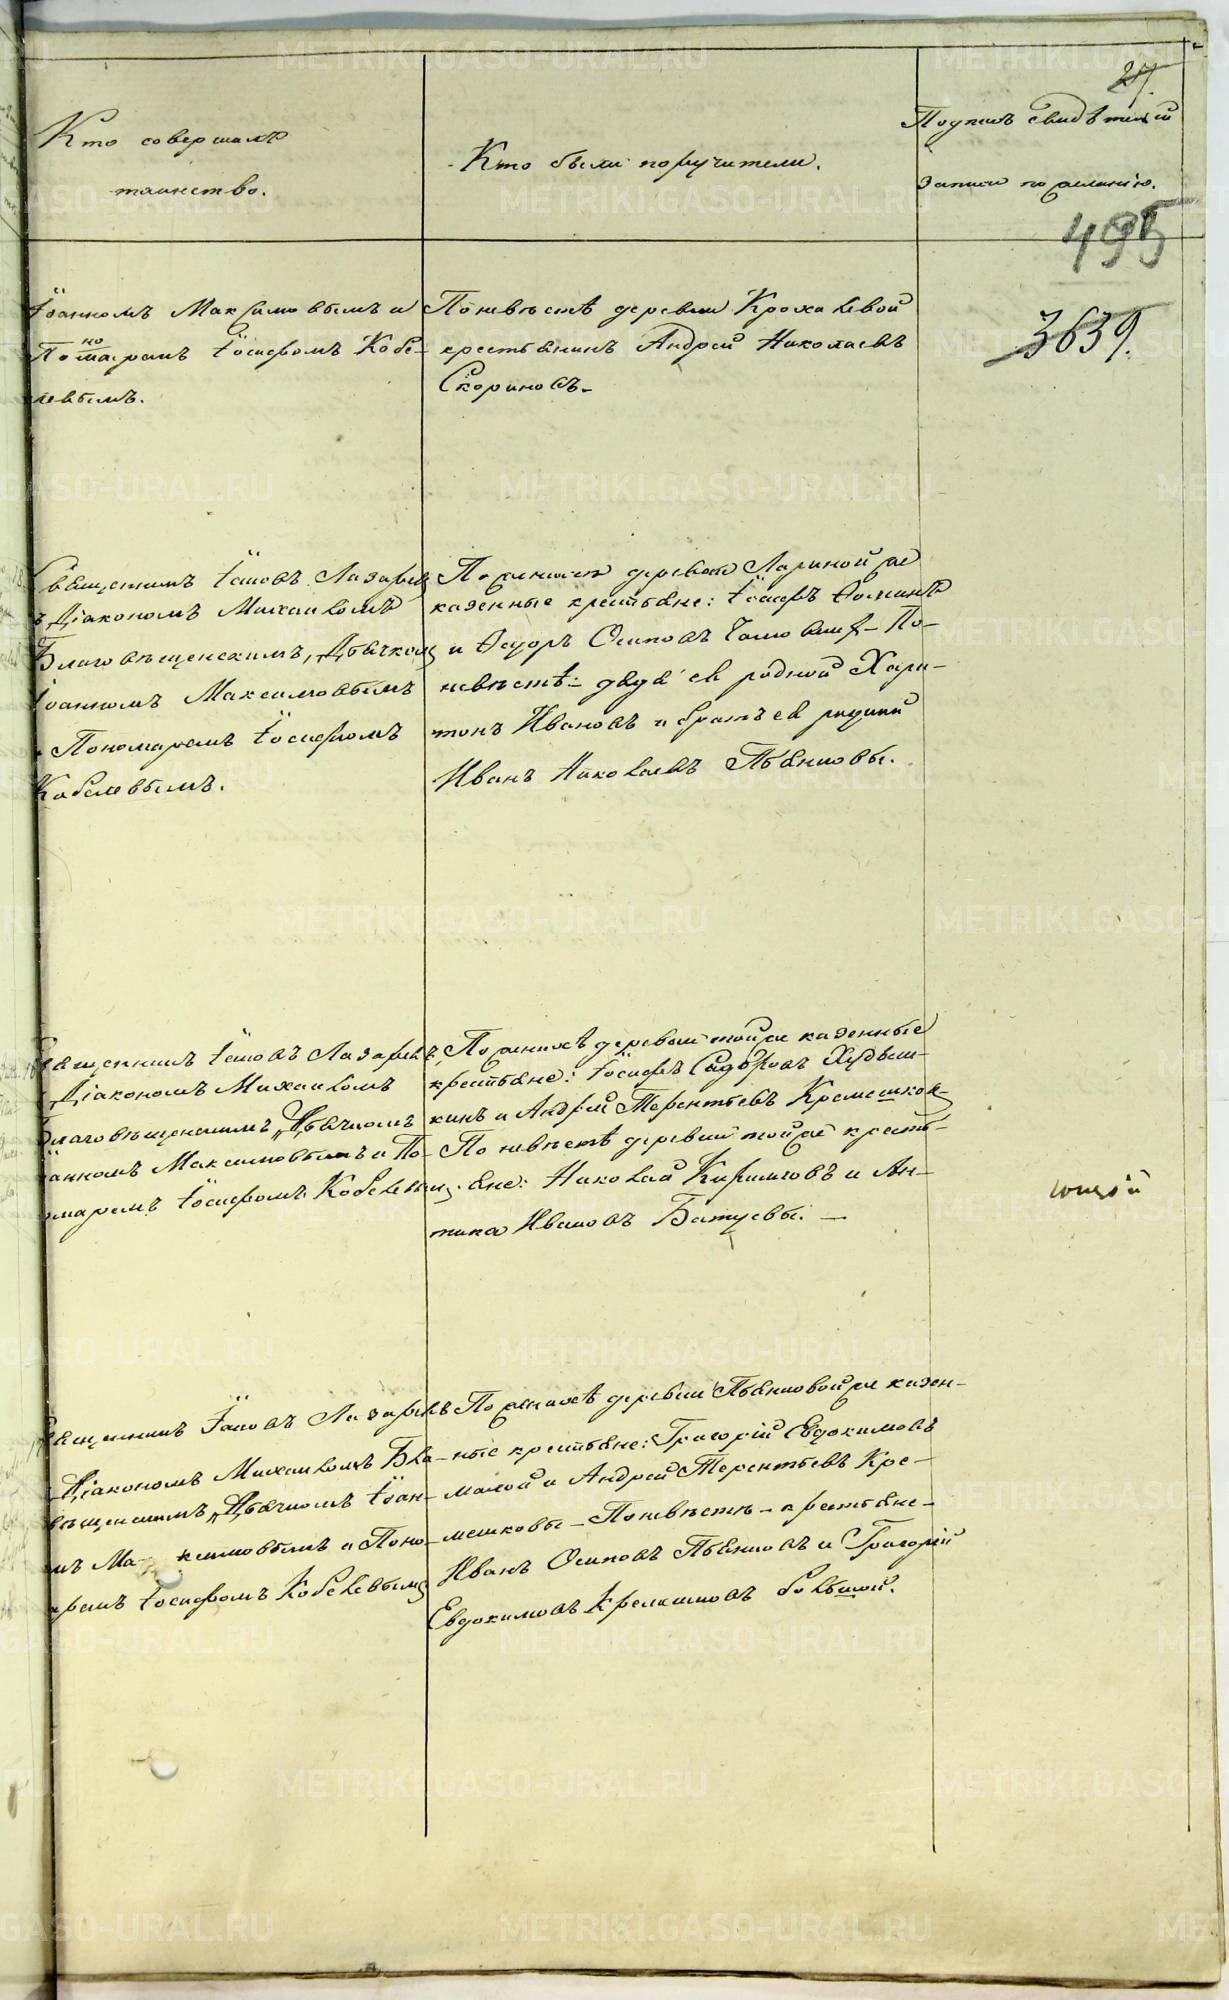 27.
Кто совершалъ
таинство.
Кто были поручители.
Подпись свидѣтелей
записи по желанію.
495
3639.
Іоанномъ Максимовымъ и
Пономаремъ Іосифомъ Кобе-
левымъ.
По невѣстѣ деревни Крохалевой
крестьянинъ Андрей Николаевъ
Скориновъ.
Священникъ Іаковъ Лазаревъ
съ Діакономъ Михаиломъ
Благовѣщенскимъ, Дьячкомъ
Іоанномъ Максимовымъ
и Пономаремъ Іосифомъ
Кобелевымъ.
По женихѣ деревни Лариной же
казенные крестьяне: Іосифъ Ѳоминъ
и Ѳедоръ Осиповъ – По-
невѣстѣ: дядя ея родной Хари-
тонъ Ивановъ и братъ ея родной
Иванъ Николаевъ Пьянковы.
Священникъ Іаковъ Лазаревъ
Діакономъ Михаиломъ
Благовѣщенскимъ, Дьячкомъ
Іоанномъ Максимовымъ и По-
номаремъ Іосифомъ Кобелевымъ.
По женихѣ деревни той же казенные
крестьяне: Іосифъ Сидоровъ
и Андрей Терентьевъ
По невѣстѣ деревни той же кресть-
яне: Николай Кириловъ и Ан-
типа Ивановъ Батуевы. –
Священникъ Іаковъ Лазаревъ
Діакономъ Михаиломъ Бла-
говѣщенскимъ, Дьячкомъ Іоан-
номъ Максимовымъ и Поно-
маремъ Іосифомъ Кобелевымъ
По женихѣ деревни Пьянковой же казен-
ные крестьяне: Григорій Евдокимовъ
малой и Андрей Терентьевъ Кре-
мешковы – По невѣстѣ – крестьяне –
Иванъ Осиповъ Пьянковъ и Григорій
Евдокимовъ Кремешковъ большой.